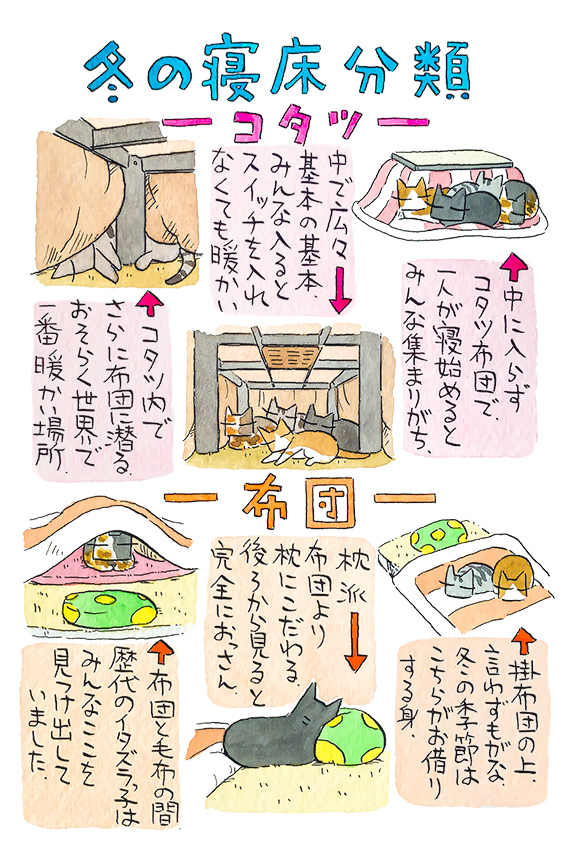 冬の寝床分類
コタツ
中に入らず
コタツ布団で、
一人が寝始めると
みんな集まりがち。
中で広々
基本の基本、
みんな入ると
スイッチを入れ
なくても暖かい
コタツ内で
さらに布団に潜る。
おそらく世界で
一番暖かい場所。
布団
掛布団の上、
言わずもがな、
冬の季節は
こちらがお借り
する身。
枕派
布団より
枕にこだわる。
後ろから見ると
完全におっさん。
布団と毛布の間
歴代のイタズラっ子は
みんなここを
見つけ出して
いました。